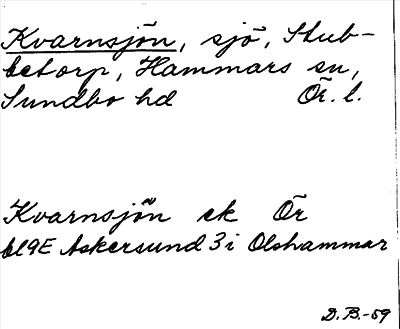 Kvarnsjön, sjö, Stub-
betorp, Hammars sn,
Sundbo hd Ör. l.
Kvarnsjön ek Ör
bl 9E Askersund 3i Olshammar
D.B.-59